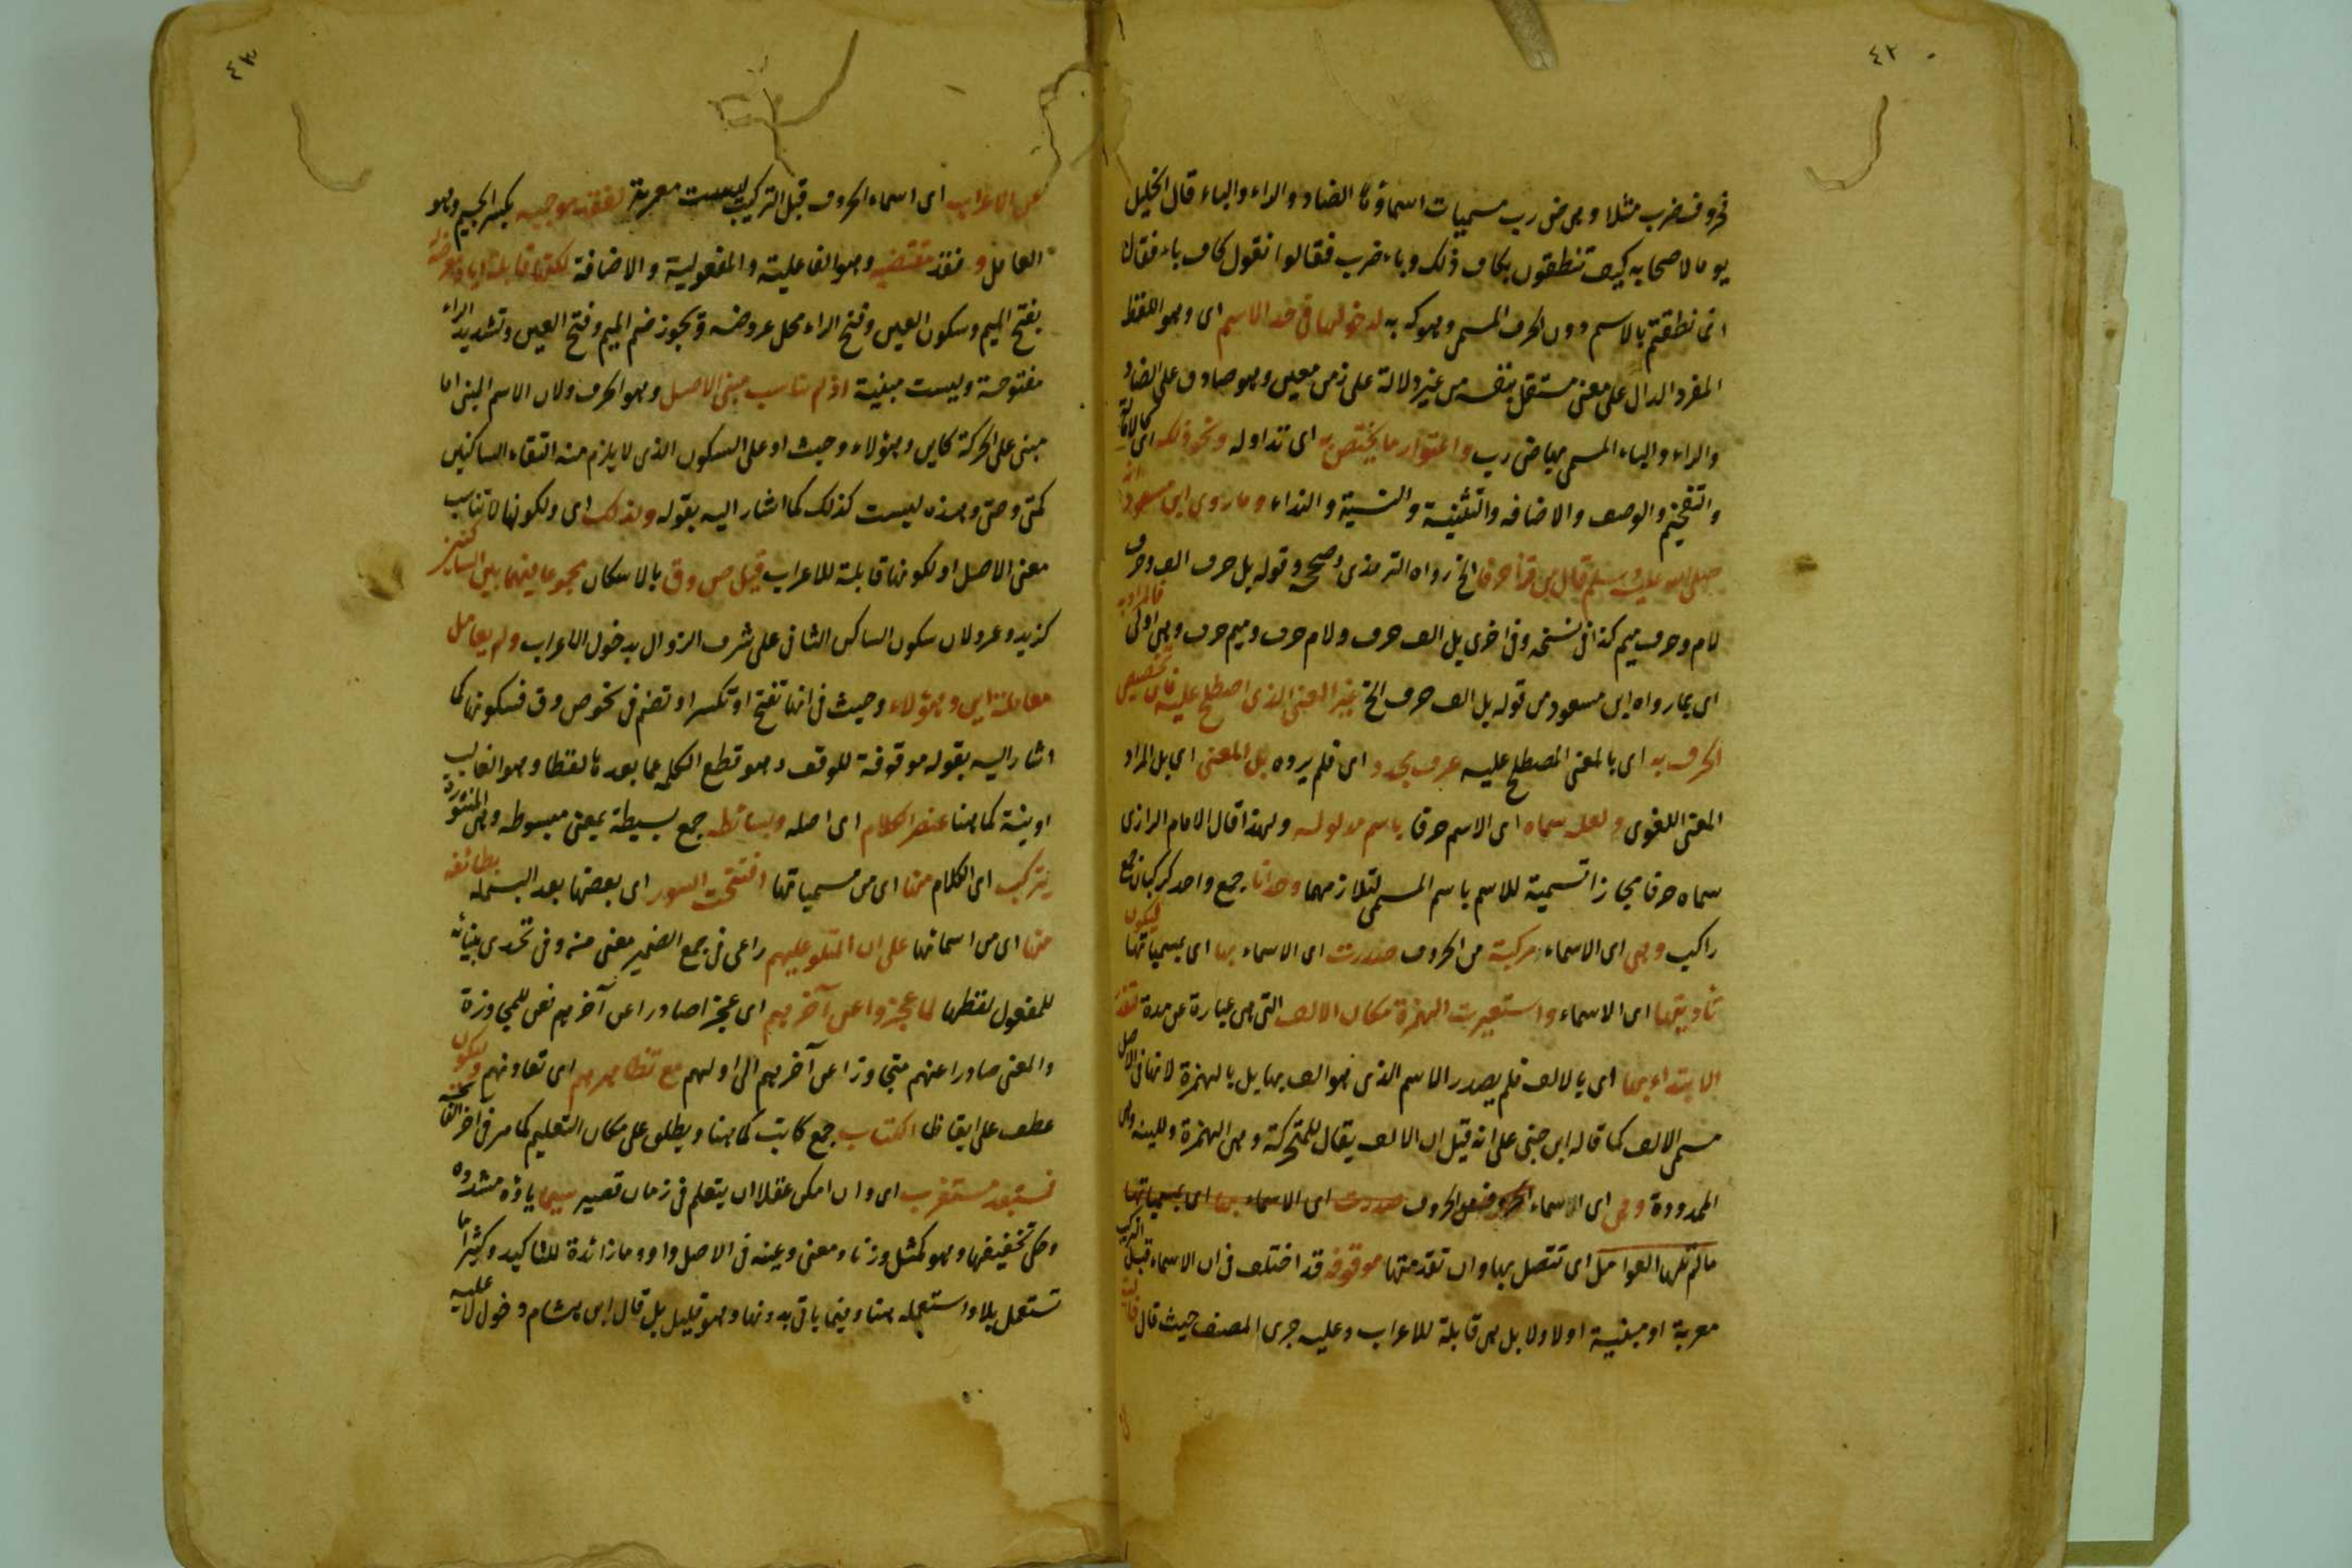 ٤٢
فحروف ضرب مثلا وهى ض رب مسميات اسماؤها الضاد والراء والباء قال الخليل
يوما لاصحابه كيف تنطقون بكاف ذلك وباء ضرب فقالوا نقول كاف باء فقال
انما نطقتم بالاسم دون الحرف المسمى وهو كه به لدخولها فى حد الاسم اى وهو اللفظ
المفرد الدال على معنى مستقل بنفسه من غير دلالة على زمن معين وهو صادق على الضاد
والراء والباء المسمى بها ض رب واعتوار ما يختص به اى تداوله ونحو ذلك اى كالامالة
والتفخيم والوصف والاضافه والتثنية والنسبة والنداء وما روى ابن مسعود انه
صلى الله عليه وسلم قال من قرأ حرفا الخ رواه الترمذى وصححه وقوله بل حرف الف وحرف
لام وحرف ميم كذا فى نسخه وفى اخرى بل الف حرف ولام حرف وميم حرف وهى اولى فالمراد به
اى بما رواه ابن مسعود من قوله بل الف حرف الخ غير المعنى الذى اصطلح عليه فان تخصيص
الحرف به اى بالمعنى المصطلح عليه عرف مجدد اى فلم يرده بل المعنى اى بل المراد
المعنى اللغوى ولعله سماه اى الاسم حرفا باسم مدلوله ولهذا قال الامام الرازى
سماه حرفا مجازا تسمية للاسم باسم المسمى لتلازمهما وحدانا جمع واحد كركبان جمع
راكب وهى اى الاسماء مركبة من الحروف صدرت اى الاسماء بها اى بمسمياتها ليكون
تأديتها اى الاسماء واستعيرت الهمزة مكان الالف التى هى عبارة عن مدة لتعذر
الابتداء بها اى بالالف فلم يصدر الاسم الذى هو الف بها بل بالهمزة لانها فى الاصل
مسمى الالف كما قاله ابن جنى على انه قيل ان الالف يقال للمتحركة وهى الهمزة ولللينه وهى
الممدودة وهى اى الاسماء الحروف صدرت اى الاسماء بها اى بمسمياتها
ما لم تلها العوامل اى تتصل بها وان تقدمتها موقوفه قد اختلف فى ان الاسماء قبل التركيب
معربة او مبنية اولا ولا بل هى قابلة للاعراب وعليه جرى المصنف حيث قال خالية
٤٣
عن الاعراب اى اسماء الحروف قبل التركيب ليست معربة لفقد موجبه بكسر الجيم وهو
العامل و فقد مقتضيه وهو الفاعلية والمفعولية والاضافة لكنها قابلة اياه ومعرضة له
بفتح الميم وسكون العين وفتح الراء محل عروضه ويجوز ضم الميم وفتح العين وتشديد الراء
مفتوحة وليست مبنية اذ لم تناسب مبنى الاصل وهو الحرف ولان الاسم المبنى اما
مبنى على الحركة كاين وهؤلاء وحيث او على السكون الذى لا يلزم منه التقاء الساكنين
كمتى وحتى وهذه ليست كذلك كما اشار اليه بقوله ولذلك اى ولكونها لا تناسب
معنى الاصل او لكونها قابلة للاعراب قيل ص وق بالاسكان مجموعا فيهما بين الساكنين
كزيد وعمرو لان سكون الساكن الثانى على شرف الزوال بدخول الاعراب ولم يعامل
معاملة اين وهؤلاء وحيث فى انها تفتح او تكسر او تضم فى نحو ص وق فسكونها كما
اشار اليه بقوله موقوفة للوقف وهو قطع الكلمه عما بعدها لفظا وهو الغالب
او نية كما هنا عنصر الكلام اى اصله وبسائطه جمع بسيطة بمعنى مبسوطه وهى المنثورة
يتركب اى الكلام منها اى من مسمياتها افتتحت السور اى بعضها بعد البسملة بطائفه
منها اى من اسمائها على ان المتلو عليهم راعى فى جمع الضمير معنى من وفى تحدى ببنائه
للمفعول لفظها لما عجزوا عن آخرهم اى عجزا صادرا عن آخرهم فعن للمجاوزة
والمعنى صادرا عنهم متجاوزا عن آخرهم الى اولهم مع تظاهرهم اى تعاونهم وليكون
عطف على ايقاظا الكتاب جمع كاتب كما هنا ويطلق على مكان التعليم كما مر فى آخر الفاتحة
فمستبعد مستغرب اى وان امكن عقلا ان يتعلم فى زمان قصير سيما ياؤه مشدده
وحكى تخفيفها وهو كمثل وزنا ومعنى وعينه فى الاصل واو وما زائدة للتاكيد وكثيرا ما
تستعمل بلا واستعمله هنا وفيما ياتى بدونها وهو قليل بل قال ابن هشام دخول لا عليه